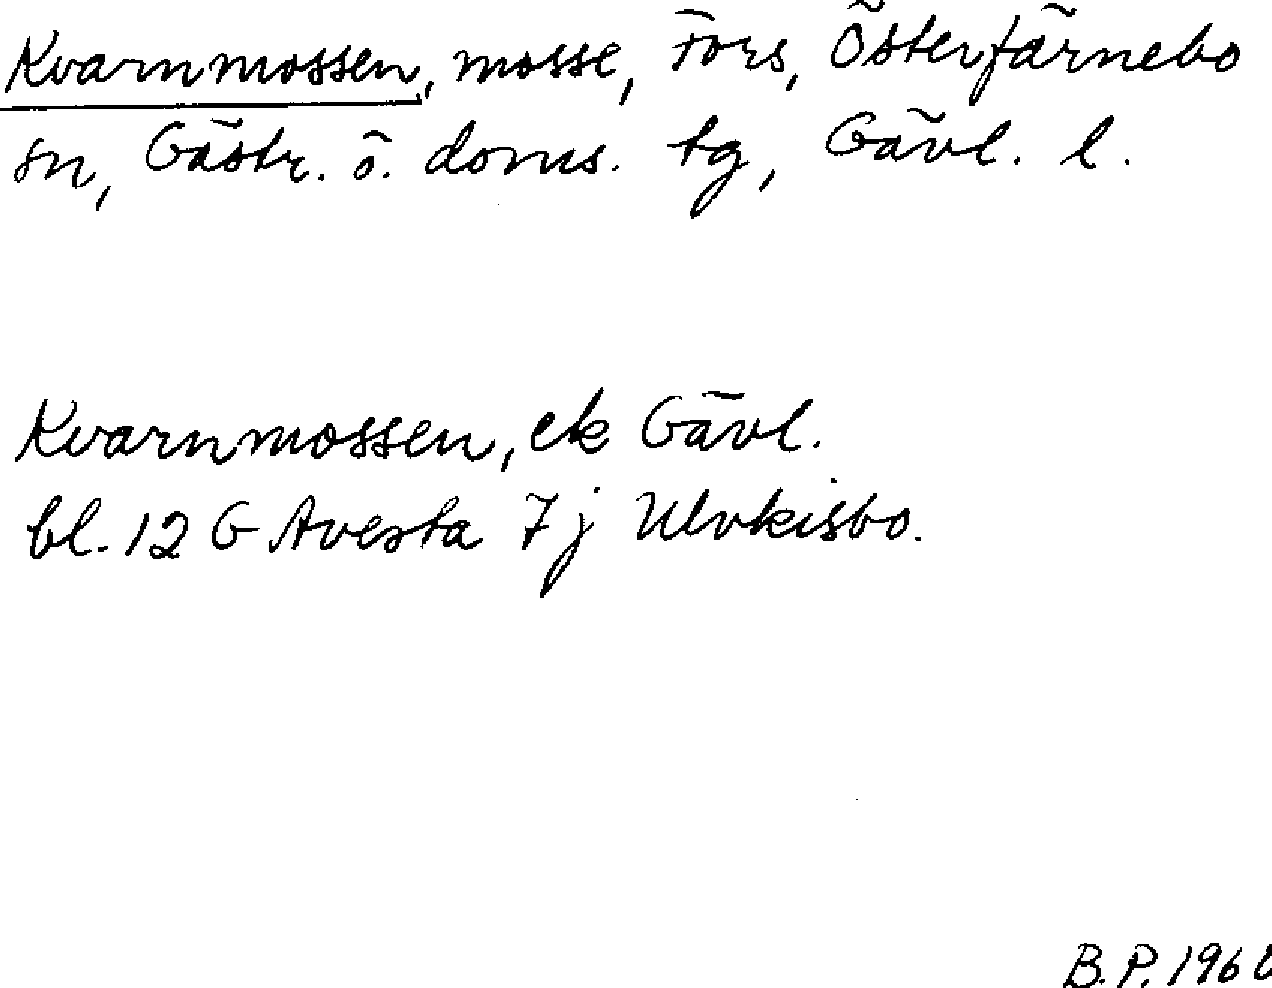 Kvarnmossen, mosse, Fors, Österfärnebo
sn, Gästr. ö. doms. tg, Gävl. l.
Kvarnmossen, ek Gävl.
bl. 12 G Avesta 7j Ulvkisbo.
B.P.